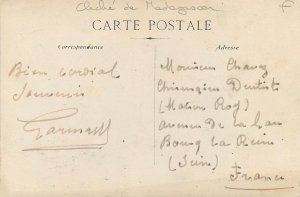 Cliché de Madagascar
CARTE POSTALE
Correspondance
Adresse
Bien cordial
Souvenir
Monsieur Chavez
Chirurgien Dentiste
(Maison Roy)
avenue De la Gare
Bourg la Reine
(Seine)
France